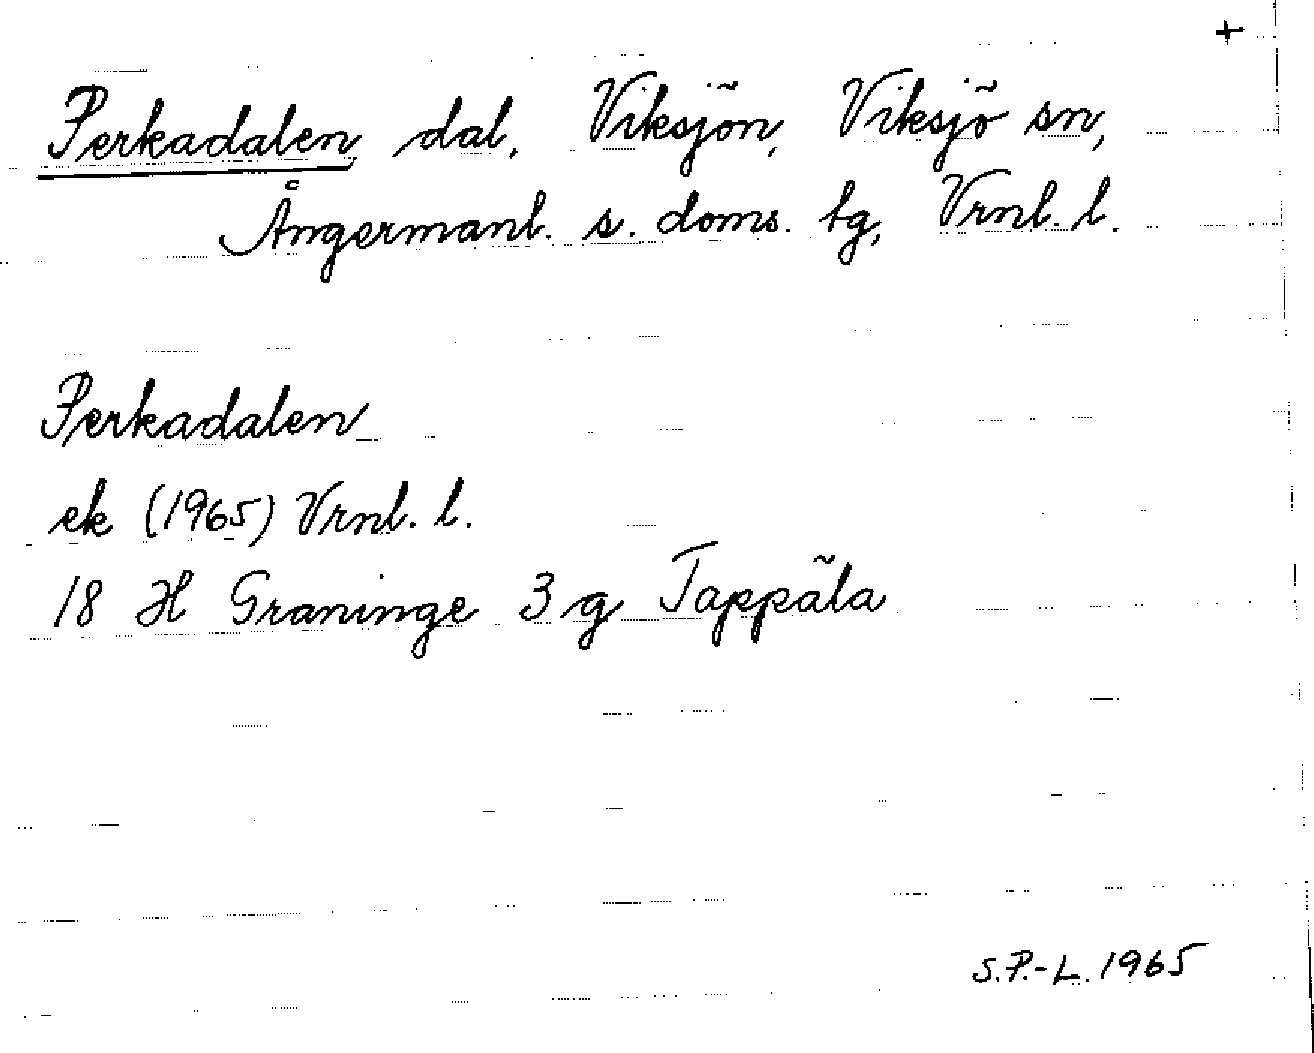 +
Perkadalen dal, Viksjön, Viksjö sn,
Ångermanl. s. doms. tg, Vrnl. l.
Perkadalen
ek (1965) Vrnl. l.
18 H Graninge 3 g Tappäla
S.P.-L. 1965